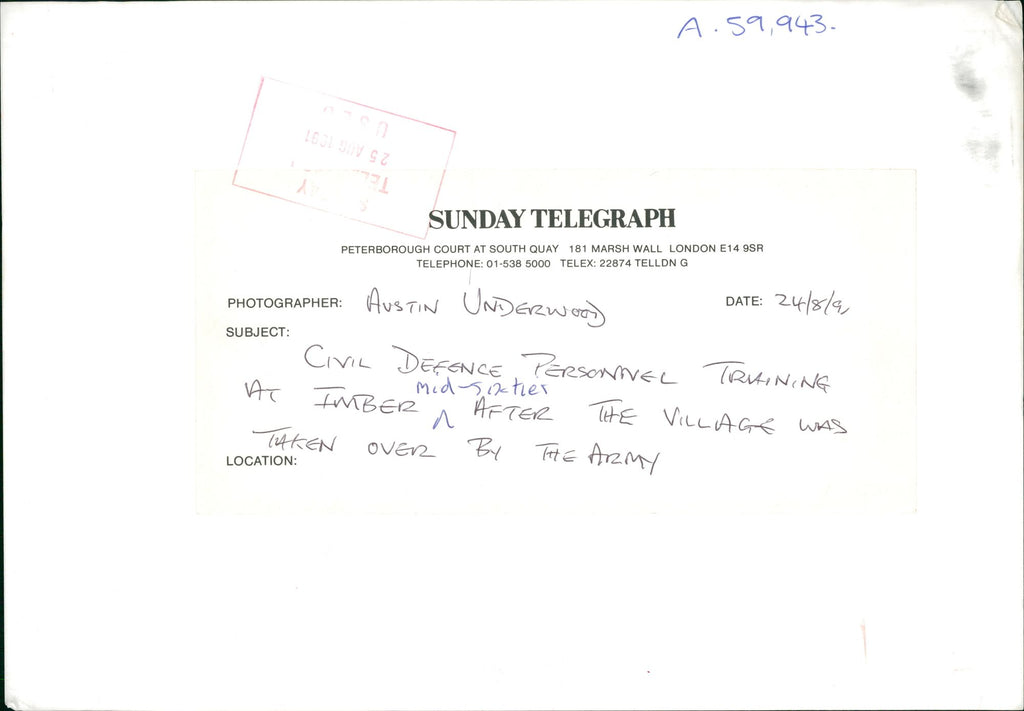 A. 59,943.
USED
25 AUG 1991
SUNDAY TELEGRAPH
PETERBOROUGH COURT AT SOUTH QUAY 181 MARSH WALL LONDON E14 9SR
TELEPHONE: 01-538 5000 TELEX: 22874 TELLDN G
PHOTOGRAPHER: AUSTIN UNDERWOOD DATE: 24/8/91
SUBJECT:
CIVIL DEFENCE PERSONNEL TRAINING
mid-sixties
AT IMBER AFTER THE VILLAGE WAS
TAKEN OVER BY THE ARMY
LOCATION: